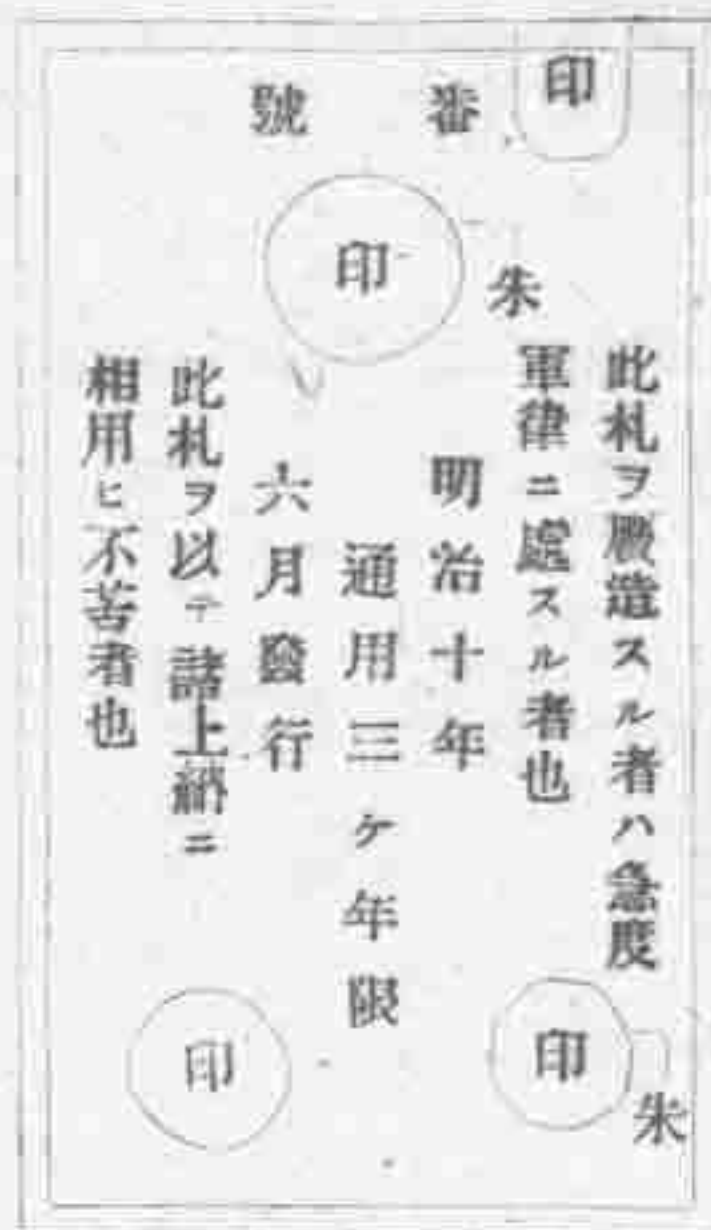 印
番號
印
朱
此札ヲ贋造スル者ハ急度
軍律ニ處スル者也
明治十年
通用三ケ年限
六月發行
此札ヲ以テ諸上納ニ
相用ヒ不苦者也
印
朱
印